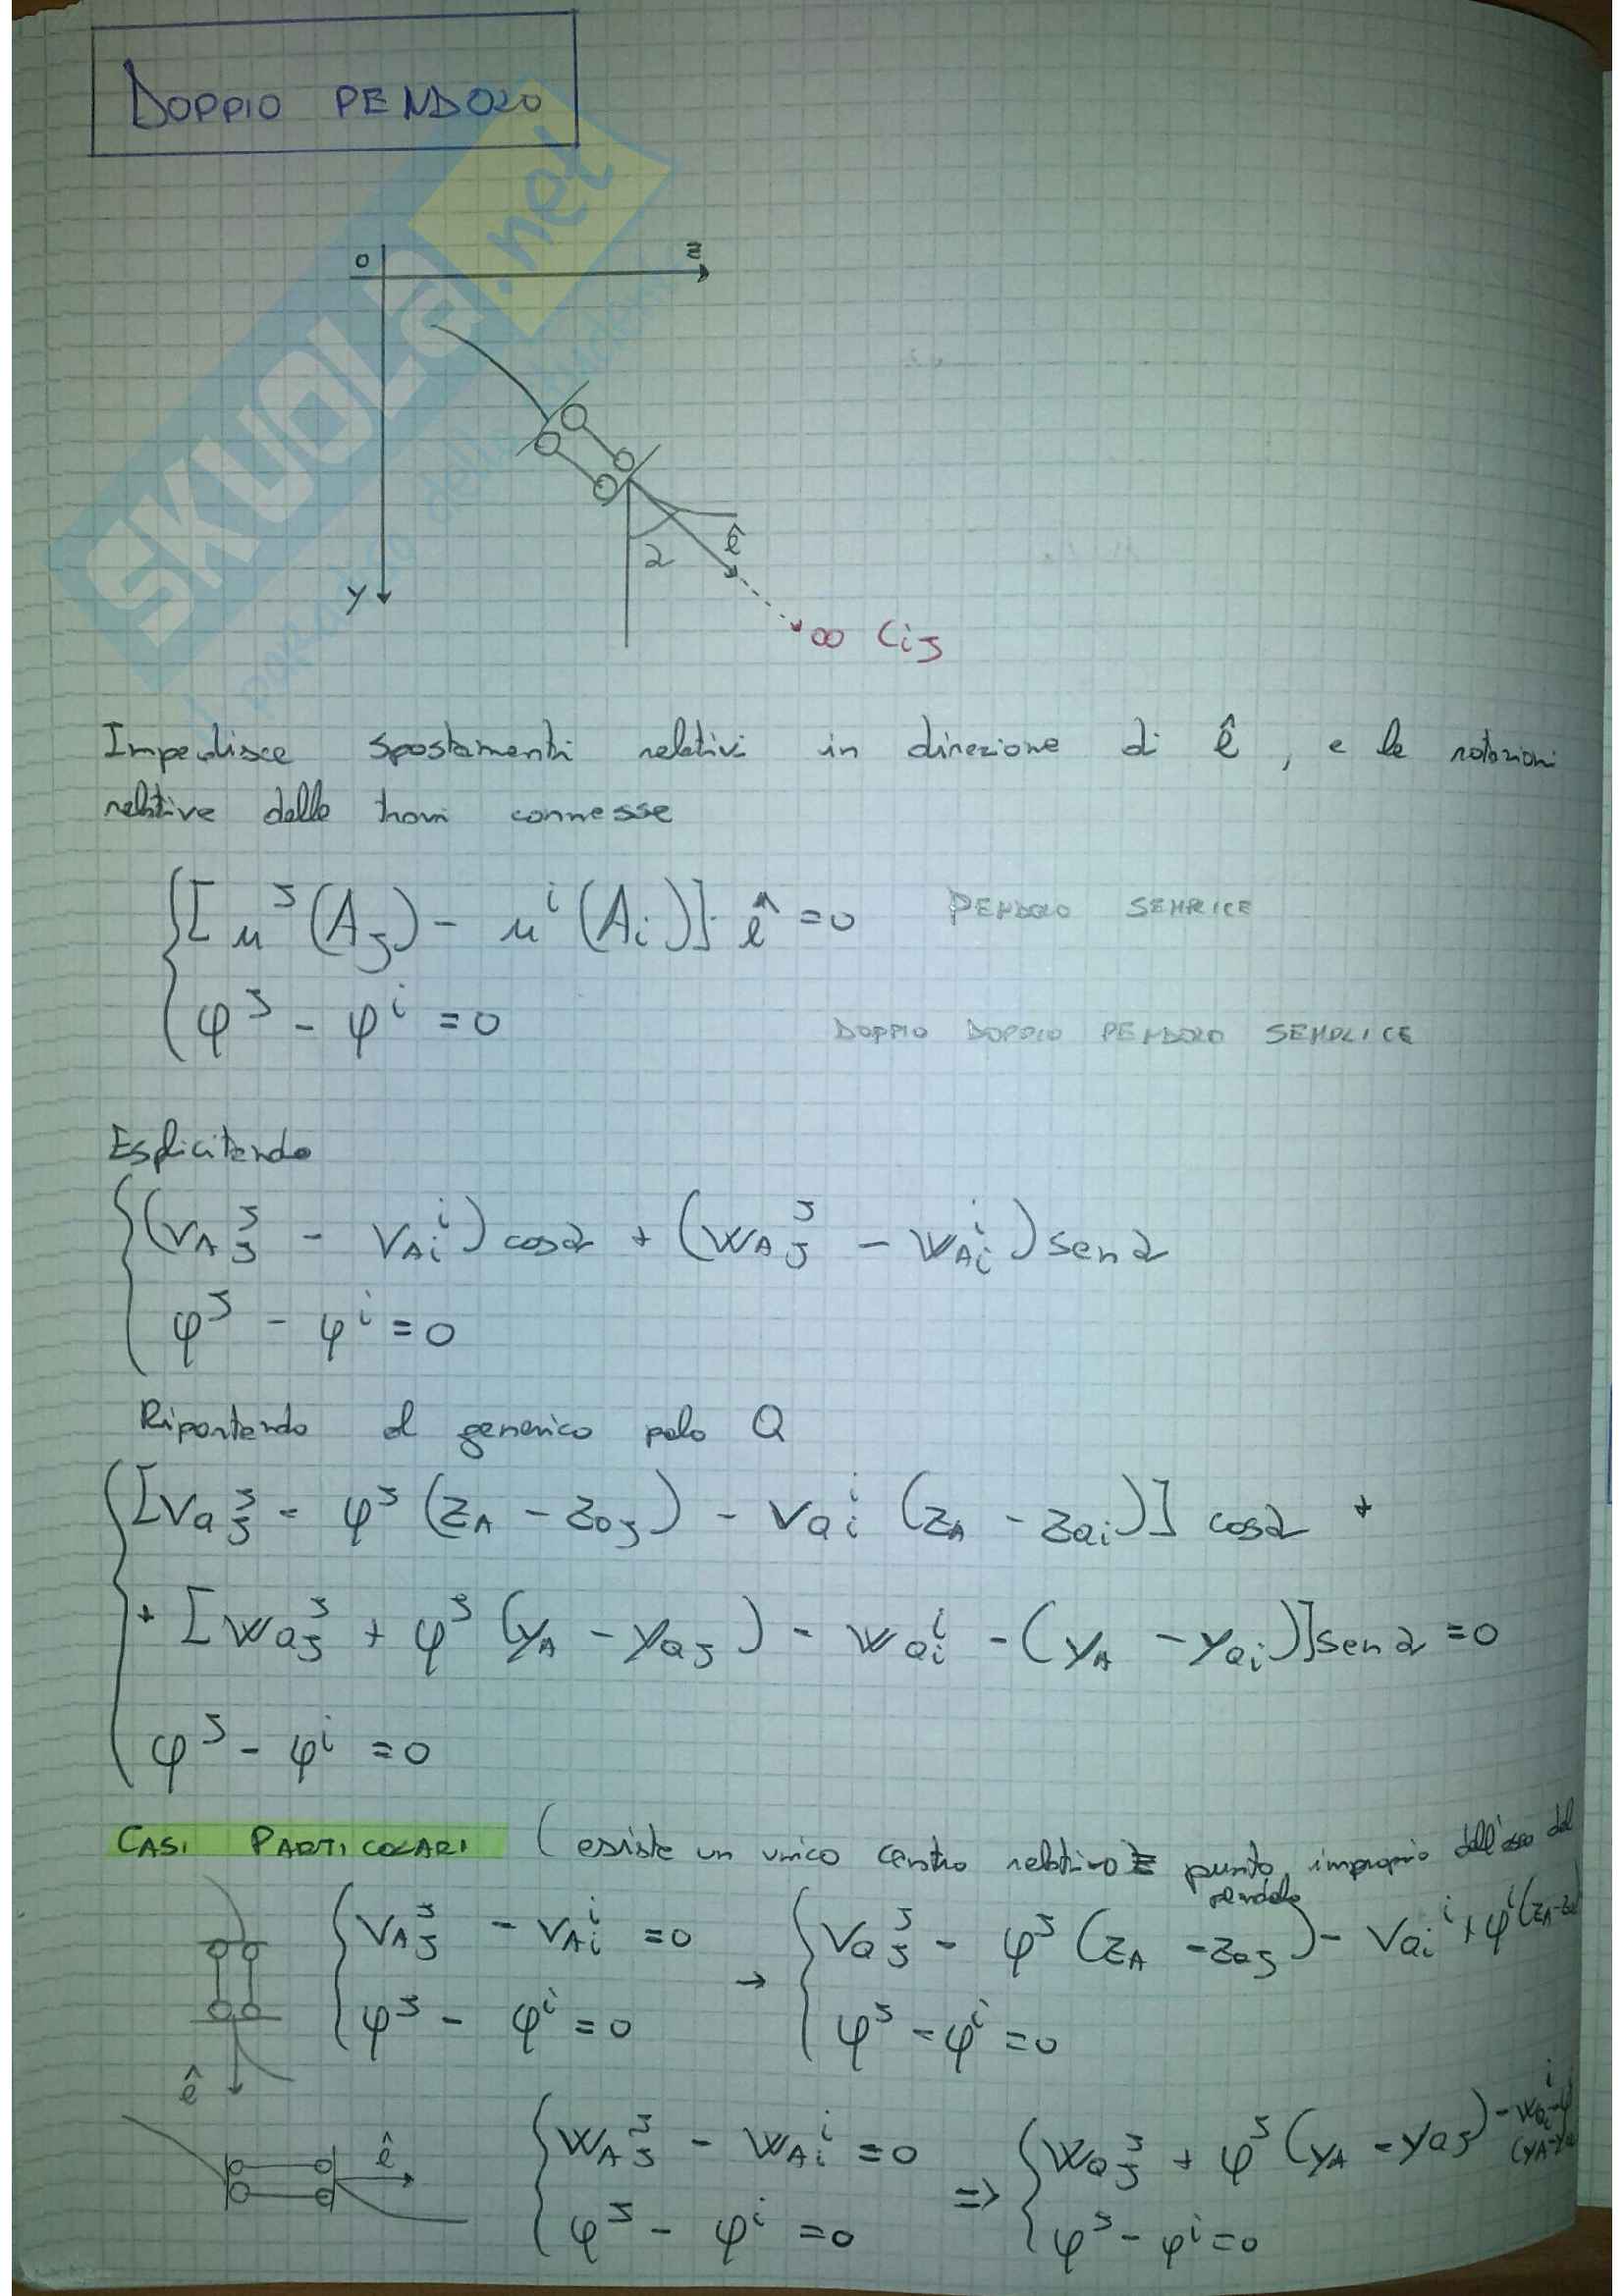 DOPPIO PENDOLO
SKUOLA.net
O z
y α ê
∞ Cij
Impedisce spostamenti relativi in direzione di ê, e le rotazioni
relative delle travi connesse
{[u^j(A_j) - u^i(A_i)]·ê = 0 PENDOLO SEMPLICE
φ^j - φ^i = 0 DOPPIO DOPPIO PENDOLO SEMPLICE
Esplicitando
{(v_Aj^j - v_Ai^i) cosα + (w_Aj^j - w_Ai^i) senα
φ^j - φ^i = 0
Riportando al generico polo Q
{[v_Qj^j - φ^j (z_A - z_Qj) - v_Qi^i (z_A - z_Qi)] cosα +
+ [w_Qj^j + φ^j (y_A - y_Qj) - w_Qi^i - (y_A - y_Qi)] senα = 0
φ^j - φ^i = 0
CASI PARTICOLARI (esiste un unico centro relativo ≡ punto improprio dell'asse del
pendolo
{v_Aj^j - v_Ai^i = 0 → {v_Qj^j - φ^j (z_A - z_Qj) - v_Qi^i + φ^i (z_A - z_Q
φ^j - φ^i = 0 φ^j - φ^i = 0
ê
ê {w_Aj^j - w_Ai^i = 0 => {w_Qj^j + φ^j (y_A - y_Qj) - w_Qi^i - φ
(y_A - y_Q
φ^j - φ^i = 0 φ^j - φ^i = 0